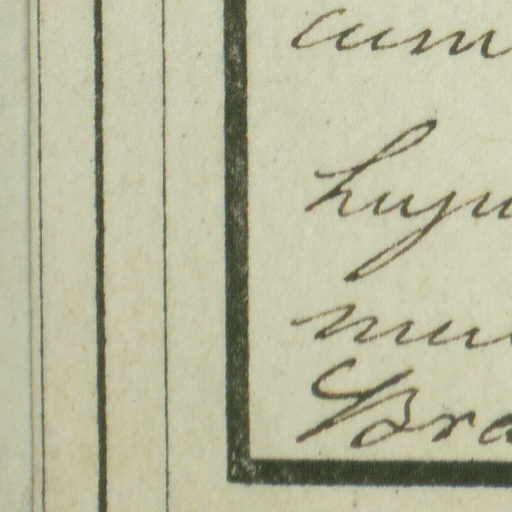 cum
huju
mu
Bra